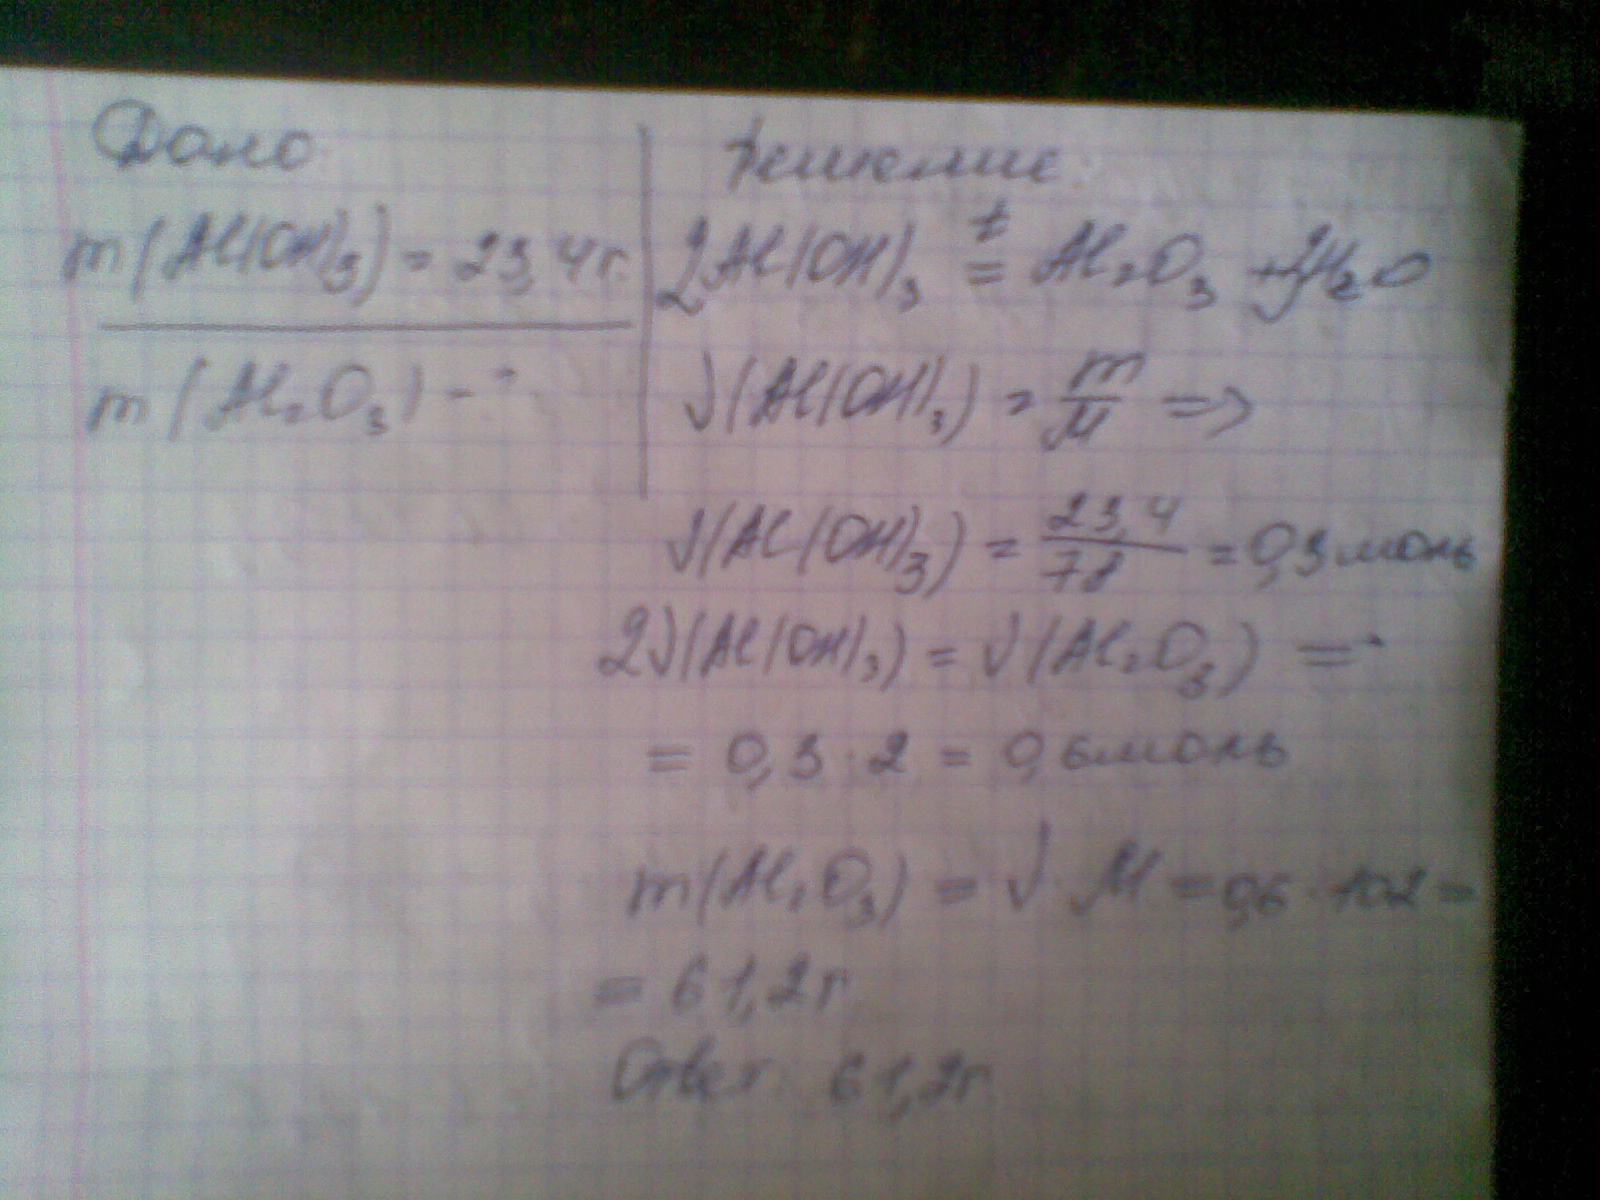 Дано
m(Al(OH)3) = 23,4 г.
m(Al2O3) - ?
Решение:
2Al(OH)3 t= Al2O3 + H2O
ν(Al(OH)3) = m/M =>
ν(Al(OH)3) = 23,4/78 = 0,3 моль
2ν(Al(OH)3) = ν(Al2O3) =
= 0,3 · 2 = 0,6 моль
m(Al2O3) = ν · M = 0,6 · 102 =
= 61,2 г
Ответ: 61,2 г